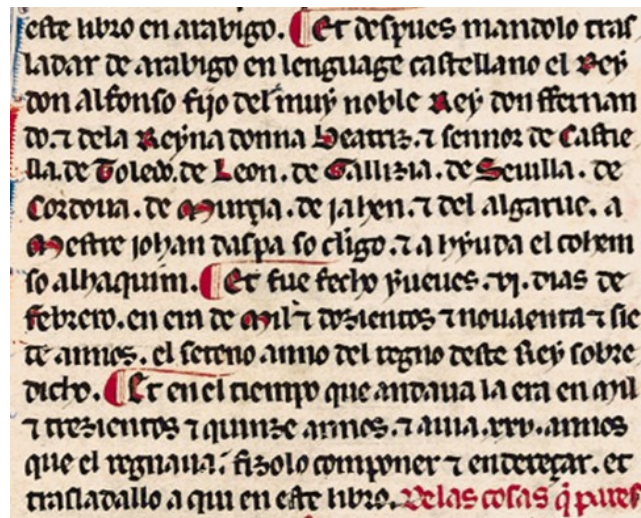 este libro en arabigo. Et despues mandolo tras
ladar de arabigo en lenguage castellano el Rey
don alfonso fijo del muy noble Rey don ffernan
do. ⁊ dela Reyna donna Beatriz. ⁊ sennor de Castie
lla. de Toledo. de Leon. de Gallizia. de Seuilla. de
Cordoua. de Murçia. de jahen. ⁊ del algarue. a
Mestre johan daspa so cligo. ⁊ a hyuda el cohem
so alhaquim. Et fue fecho yueues. vj. dias de
febrero. en era de Mil ⁊ dozientos ⁊ nouaenta ⁊ sie
te annos. el seteno anno del regno deste Rey sobre
dicho. Et en el tiempo que andaua la era en mill
⁊ trezientos ⁊ quinze annos. ⁊ auia. xxv. annos
que el regnaua. fizolo componer ⁊ endereçar. et
trasladallo a qui en este libro. Delas cosas q̃ pares